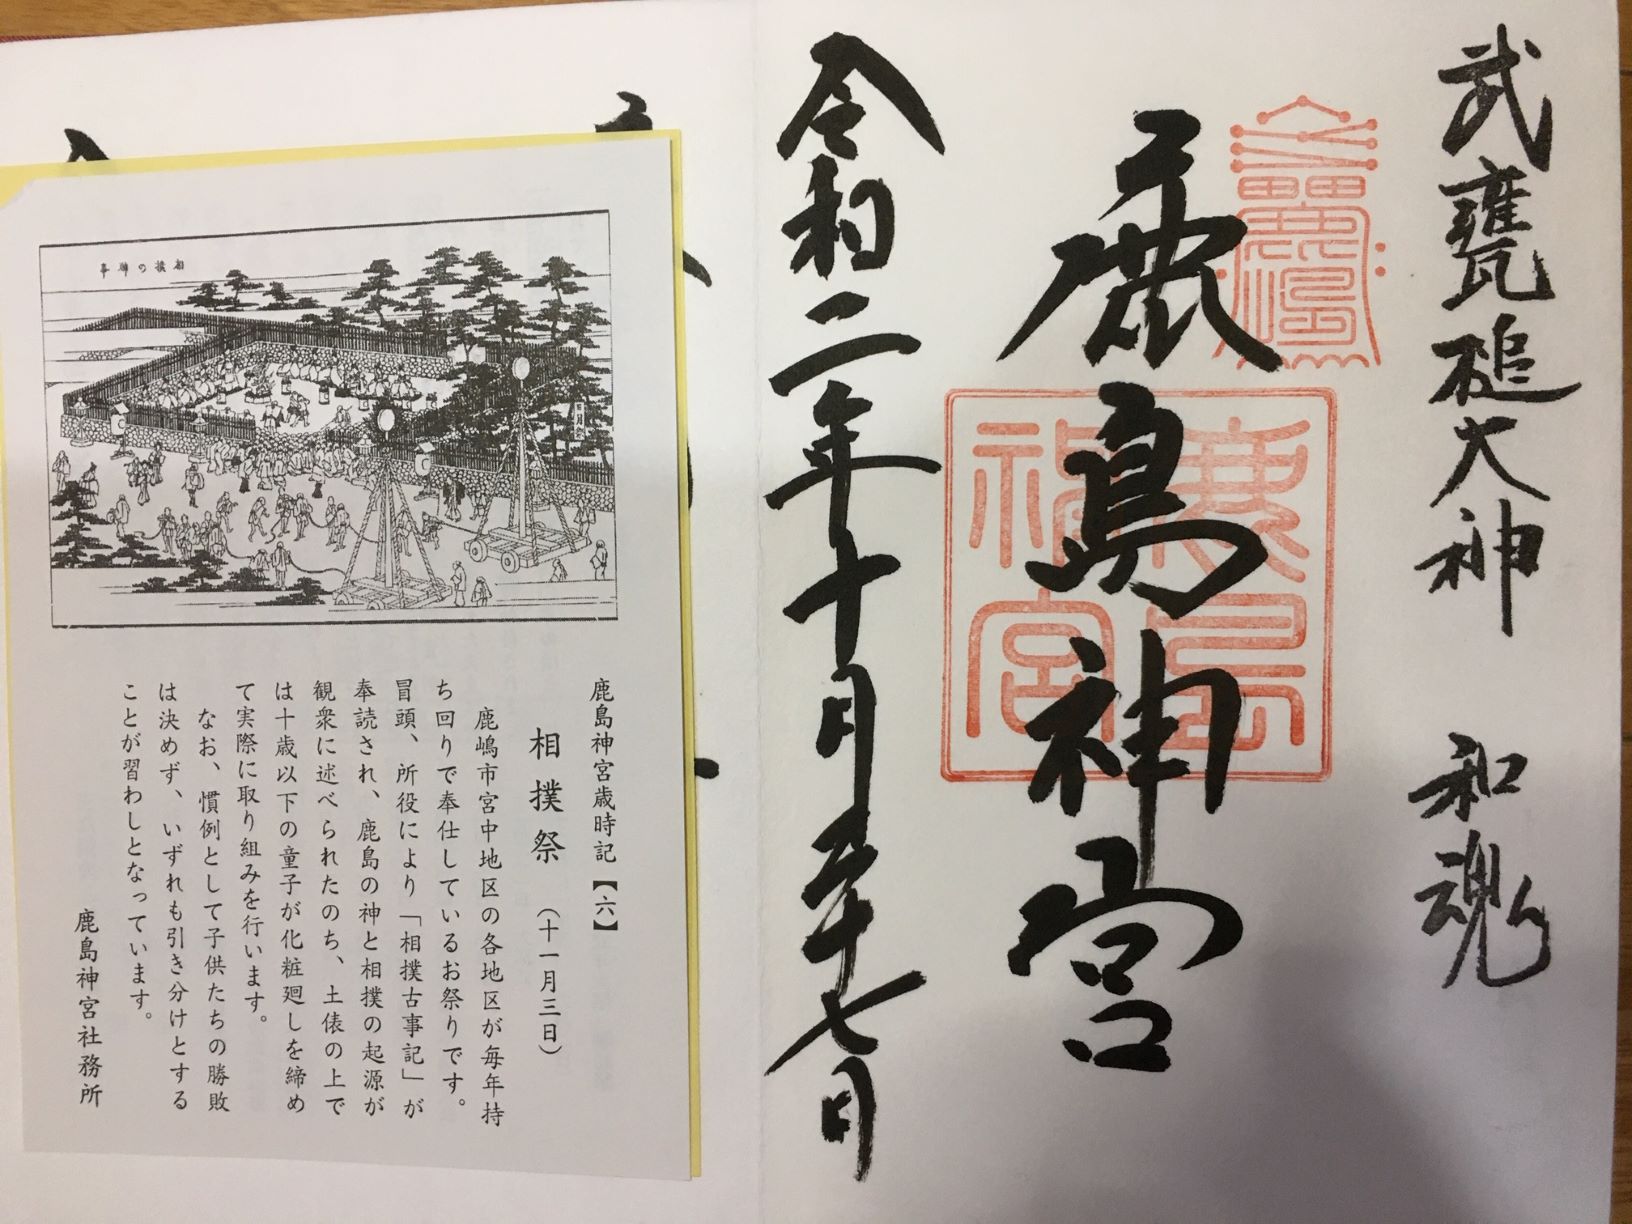 武甕槌大神 和魂
鹿島神宮
鹿島神宮
令和二年十月二十七日
相撲の神事
鹿島神宮歳時記【六】
相撲祭 (十一月三日)
鹿嶋市宮中地区の各地区が毎年持
ち回りで奉仕しているお祭りです。
冒頭、所役により「相撲古事記」が
奉読され、鹿島の神と相撲の起源が
観衆に述べられたのち、土俵の上で
は十歳以下の童子が化粧廻しを締め
て実際に取り組みを行います。
なお、慣例として子供たちの勝敗
は決めず、いずれも引き分けとする
ことが習わしとなっています。
鹿島神宮社務所